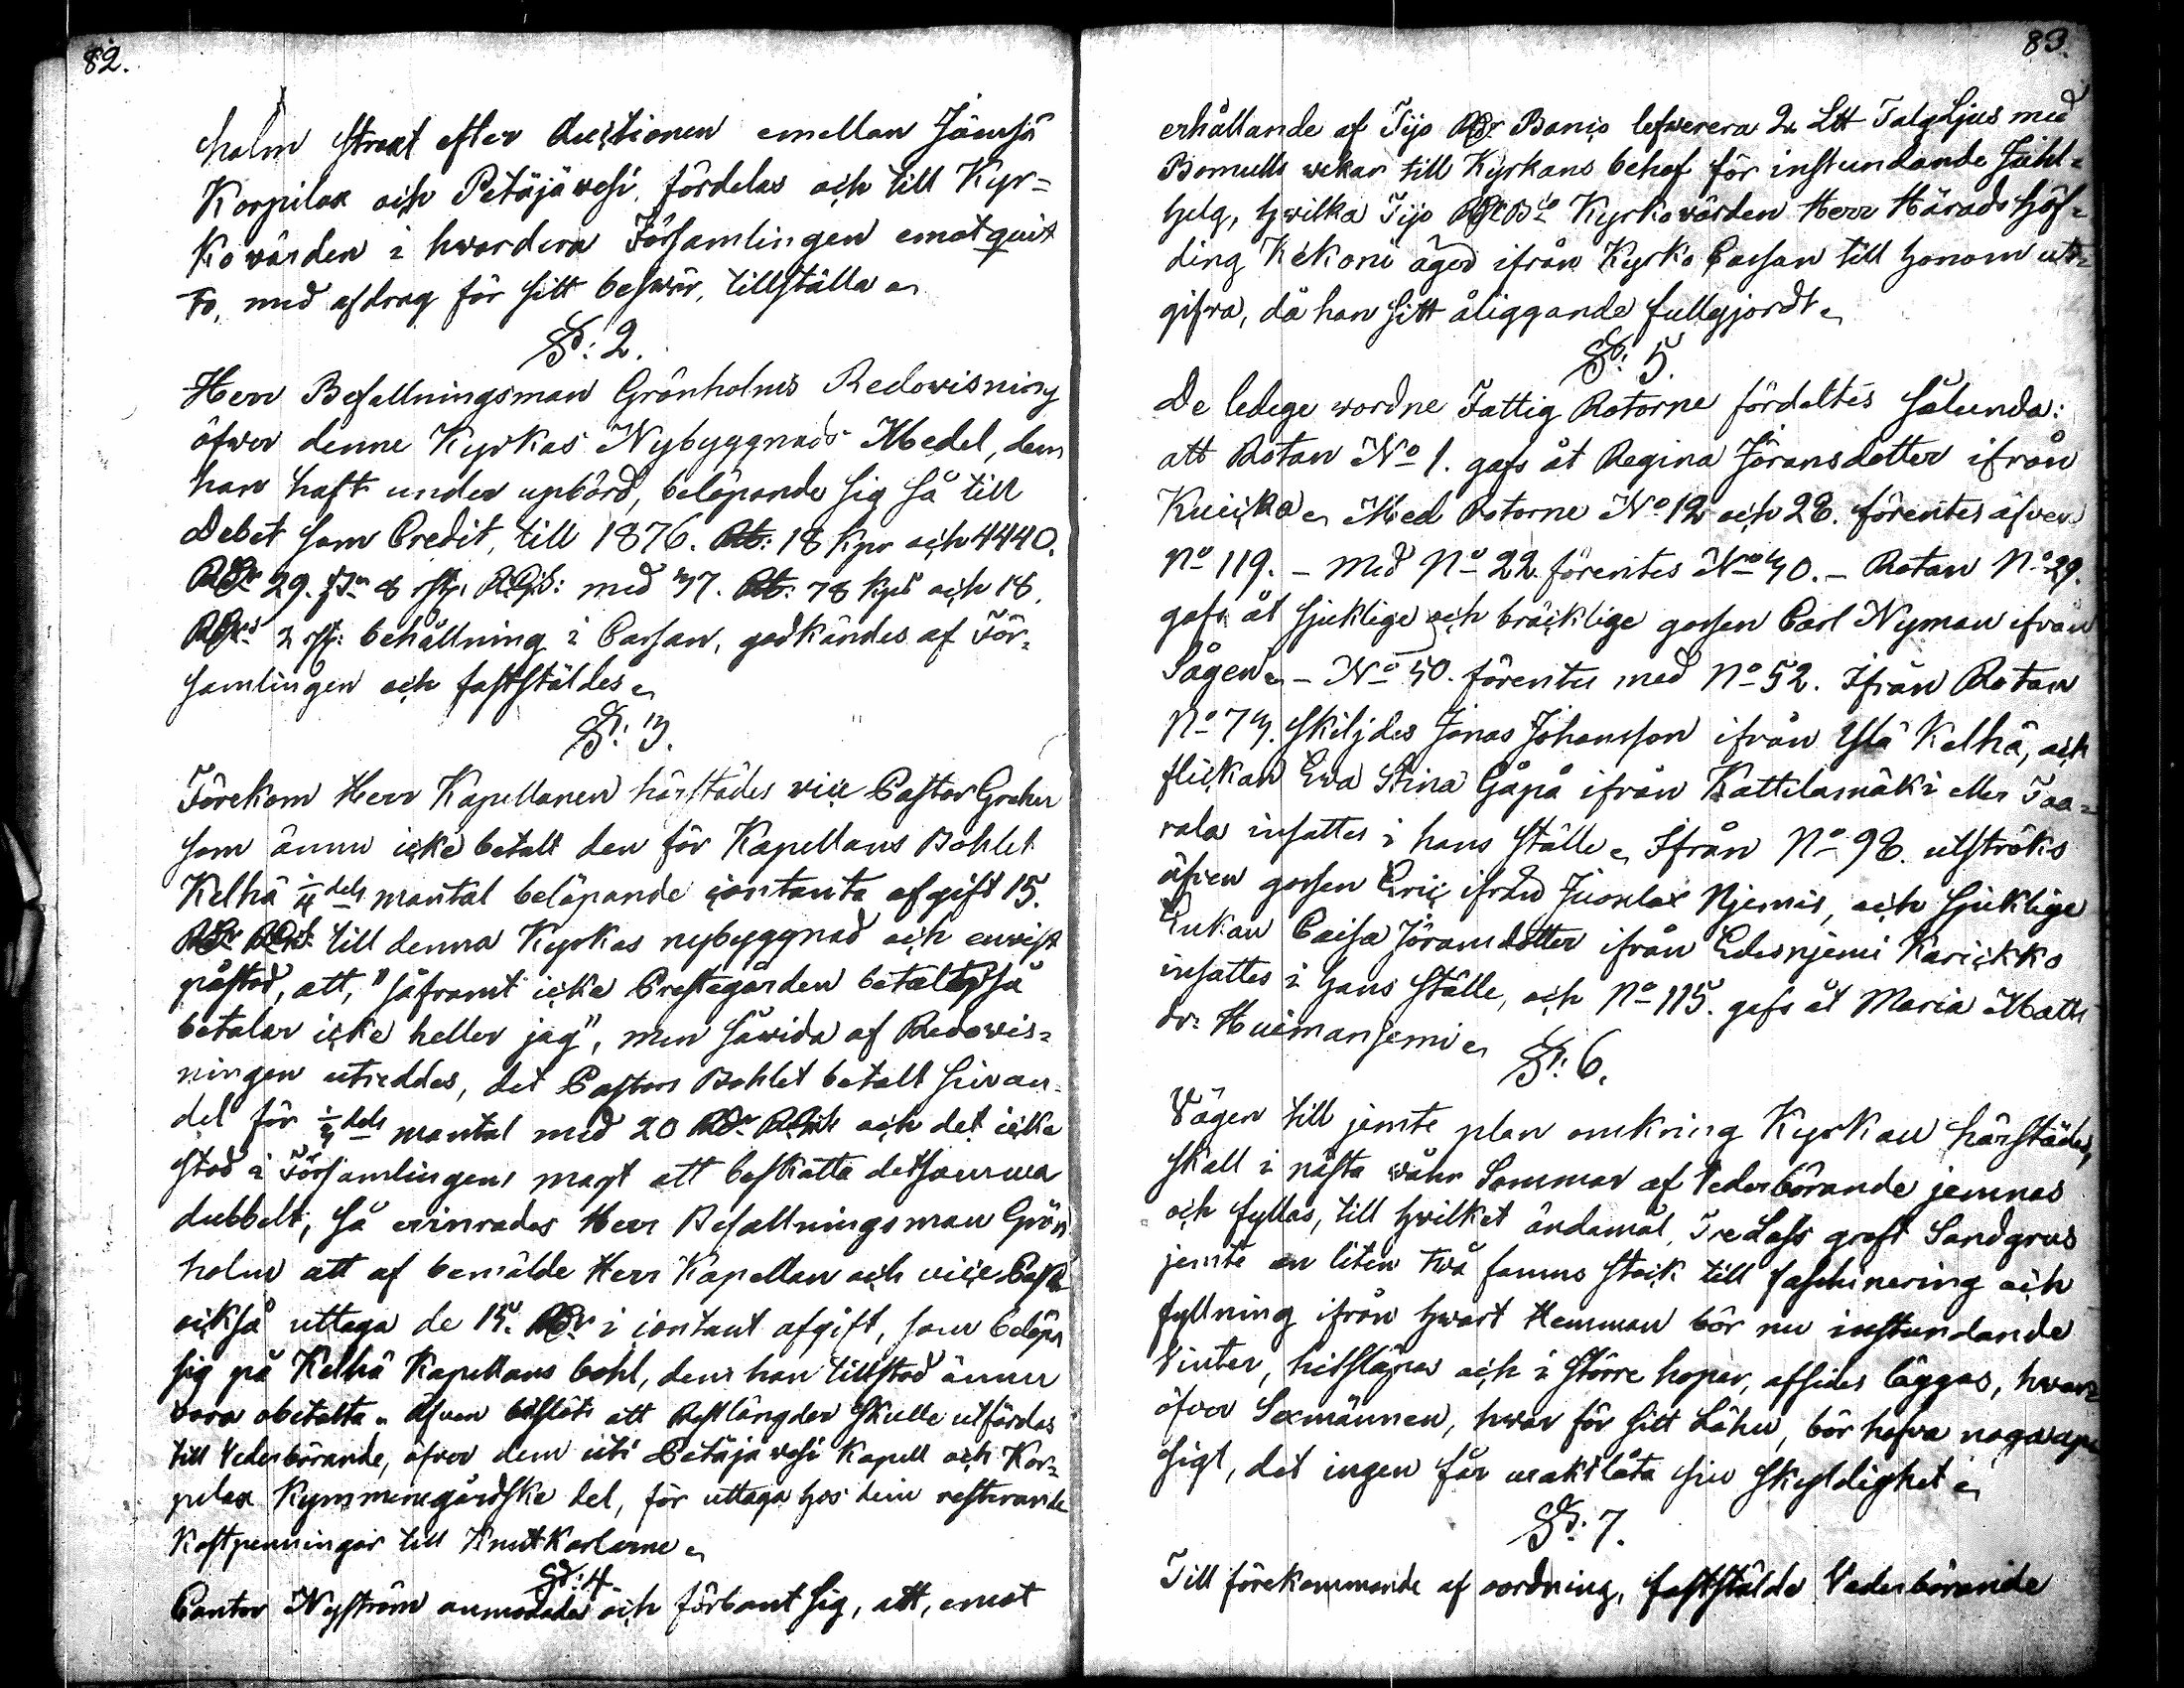 82.
holm straxt efter Auctionen emellan Jämsä
Korpilax och Petäjävesi, fördelas och till Kyr=
kovärden i hwardera Församlingen emot quit
to, med afdrag för sitt beswär, tillställa
§: 2.
Herr Befallningsman Grönholms Redovisning
öfwer denne Kyrkas Nybyggnads Medel, dem
han haft under upbörd, belöpande sig så till
Debet som Credit, till 1876. Rb: 18 kpr och 4440.
RDr 29. 8 med 37. Rb. 78 kps och 18.
2 behållning i Cassan, godkändes af För=
samlingen och faststäldes
§: 3.
Förekom Herr Kapellanen härstädes vice Pastor
som ännu icke betalt den för Kapellans Bohlet
Kelhä 1/4 dels mantal belöpande contanta afgift 15.
RDr till denna Kyrkas nybyggnad och enwist
påstod, att, "såframt icke Prestegården betalt, så
betalar icke heller jag", men såwida af Redowis=
ningen utreddes, det Pastors Bohlet betalt sin an=
del för dels mantal med 20 RDr och det icke
stod i Församlingens magt att beskatta detsamma
dubbelt, så errinrades Herr Befallningsman Grön
holm att af bemälde Herr Kapellan och vice Past
också uttaga de 15. RDr i contant afgift, som belöpa
sig på Kelhä Kapellans bohl, dem han tillstod ännu
vara obetalta. Äfven beslöts att Restlängder skulle utfärdas
till Vederbörande, öfver dem uti Petäjävesi Kapell och Kor=
pilax Kymmenegårdske del, för uttaga hos dem resterande
Kostpenningar till Knutkarlarne
§: 4.
Cantor Nyström anmodades och förbant sig, att, emot
83.
erhållande af Tijo RDr Banco lefwerera 2 Ltt TalgLjus med
Bomulls wekar till Kyrkans behof för instundande Juhl=
helg, hwilka Tijo RDr Bco Kyrkovärden Herr Häradshöf=
ding Kekoni äger ifrån Kyrko Cassan till honom ut=
gifva, då han sitt åliggande fullgjordt
§: 5.
De ledige wordne Fattig Rotorne fördeltes sålunda:
att Rotan No 1. gafs åt Regina Jöransdotter ifrån
Kuicka Med Rotorne No 12 och 28. förentes äfven
No 119. - Med No 22. förentes No 40. - Rotan No 29.
gafs åt sjuklige och bräcklige gossen Carl Nyman ifrån
Sågen - No 50. förentes med No 52. Ifrån Rotan
No 73. skiljdes Jonas Johansson ifrån Ylä Kelhä, och
flickan Ewa Stina Gåpå ifrån Kattilamäki eller Taa=
rala insattes i hans ställe Ifrån No 98. utströks
äfven gossen Eric ifrån Juonlax Njemis, och sjuklige
Enkan Caisa Jöransdotter ifrån Edesnjemi Karickko
insattes i hans ställe, och No 115. gafs åt Maria Matts
dr Huimanjemi
§: 6.
Vägen till jemte plan omkring Kyrkan härstädes,
skall i nästa wåhr Sommar af Vederbörande jemnas
och fyllas, till hwilket ändamål, Tre Lass groft Sandgrus
jemte en liten twå famns stock till faschinering och
fyllning ifrån hwart Hemman bör nu instundande
Vinter, hitsläpas och i större hopar, afsides läggas, hwar=
öfver Sexmännen, hwar för sitt Lähn, bör hafva noga up
sigt, det ingen får uraktlåta sin skyldighet
§: 7.
Till förekommande af oordning, faststälde Vederbörande